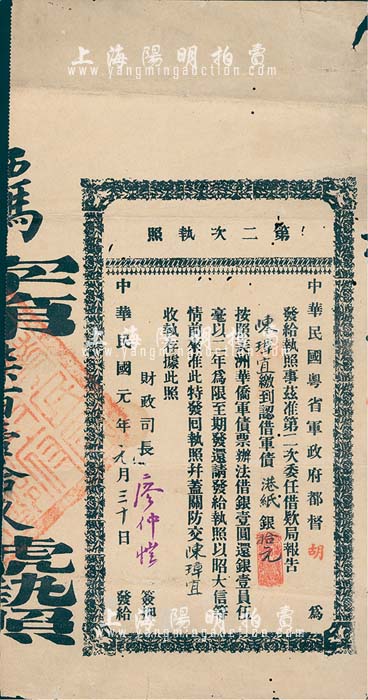 上海陽明拍賣
www.yangmingauction.com
第二次執照
中華民國粵省軍政府都督 胡 為
發給執照事茲准第二次委任借欵局報告
陳璋宜繳到認借軍債 港紙 銀拾元
按照 洲華僑軍債票辦法借銀壹圓還銀壹員伍
毫以一年為限至期發還請發給執照以昭大信等
情前來准此特發囘執照幷蓋關防交 陳璋宜
收執為據此照
財政司長 廖仲愷 簽押
中華民國元年 九月三十日 發給
號執照